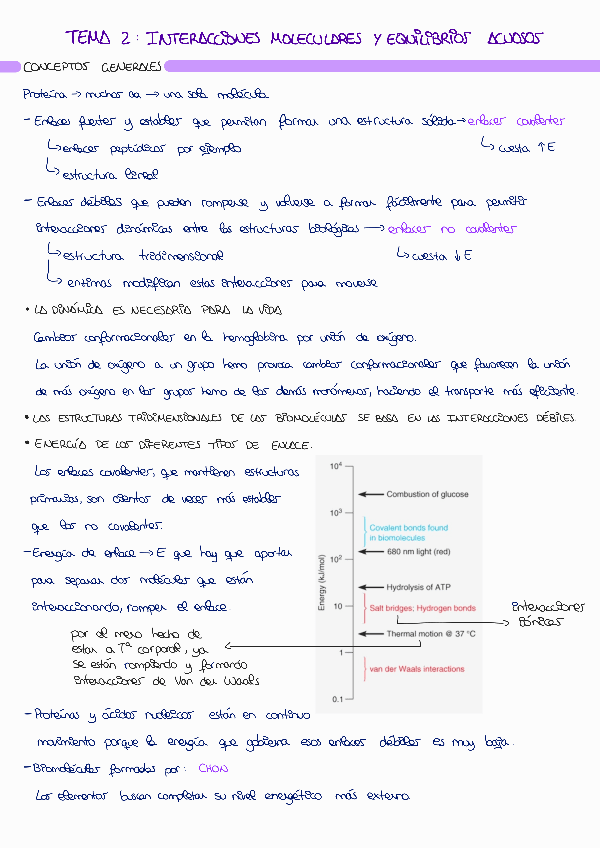 TEMA 2: INTERACCIONES MOLECULARES Y EQUILIBRIOS ACUOSOS
CONCEPTOS GENERALES
Proteína → muchos aa → una sola molécula
- Enlaces fuertes y estables que permitan formar una estructura sólida → enlaces covalentes
↳ enlaces peptídicos por ejemplo
↳ cuesta ↑E
↳ estructura lineal
- Enlaces débiles que pueden romperse y volverse a formar fácilmente para permitir
interacciones dinámicas entre las estructuras biológicas → enlaces no covalentes
↳ estructura tridimensional
↳ cuesta ↓E
↳ enzimas modifican estas interacciones para moverse
• LA DINÁMICA ES NECESARIA PARA LA VIDA
Cambios conformacionales en la hemoglobina por unión de oxígeno.
La unión de oxígeno a un grupo hemo provoca cambios conformacionales que favorecen la unión
de más oxígeno en los grupos hemo de los demás monómeros, haciendo el transporte más eficiente.
• LAS ESTRUCTURAS TRIDIMENSIONALES DE LAS BIOMOLÉCULAS SE BASA EN LAS INTERACCIONES DÉBILES.
• ENERGÍA DE LOS DIFERENTES TIPOS DE ENLACE.
Los enlaces covalentes, que mantienen estructuras
primarias, son cientos de veces más estables
que los no covalentes.
- Energía de enlace → E que hay que aportar
para separar dos moléculas que están
interaccionando, romper el enlace
por el mero hecho de
estar a Tª corporal, ya
se están rompiendo y formando
interacciones de Van der Waals
Energy (kJ/mol)
10⁴
Combustion of glucose
10³
Covalent bonds found
in biomolecules
680 nm light (red)
10²
Hydrolysis of ATP
10
Salt bridges; Hydrogen bonds
interacciones
iónicas
Thermal motion @ 37 °C
1
van der Waals interactions
0.1
- Proteínas y ácidos nucleicos están en continuo
movimiento porque la energía que gobierna esos enlaces débiles es muy baja.
- Biomoléculas formadas por: CHON
Los elementos buscan completar su nivel energético más externo